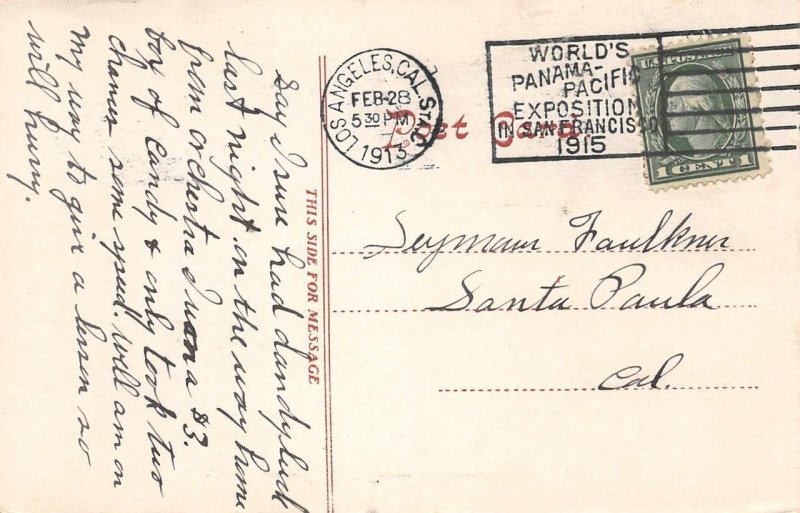 Say I sure had dandy luck
last night on the way home
from orchestra I won a $3.
box of candy & only took two
chances some speed. Well am on
my way to give a lesson so
will hurry.
THIS SIDE FOR MESSAGE
LOS ANGELES, CAL. STA.
FEB 28
5 30 PM
1913
Post Card
WORLD'S
PANAMA-
PACIFIC
EXPOSITION
IN SAN FRANCISCO
1915
U.S. POSTAGE
1 CENT 1
Seymour Faulkner
Santa Paula
Cal.